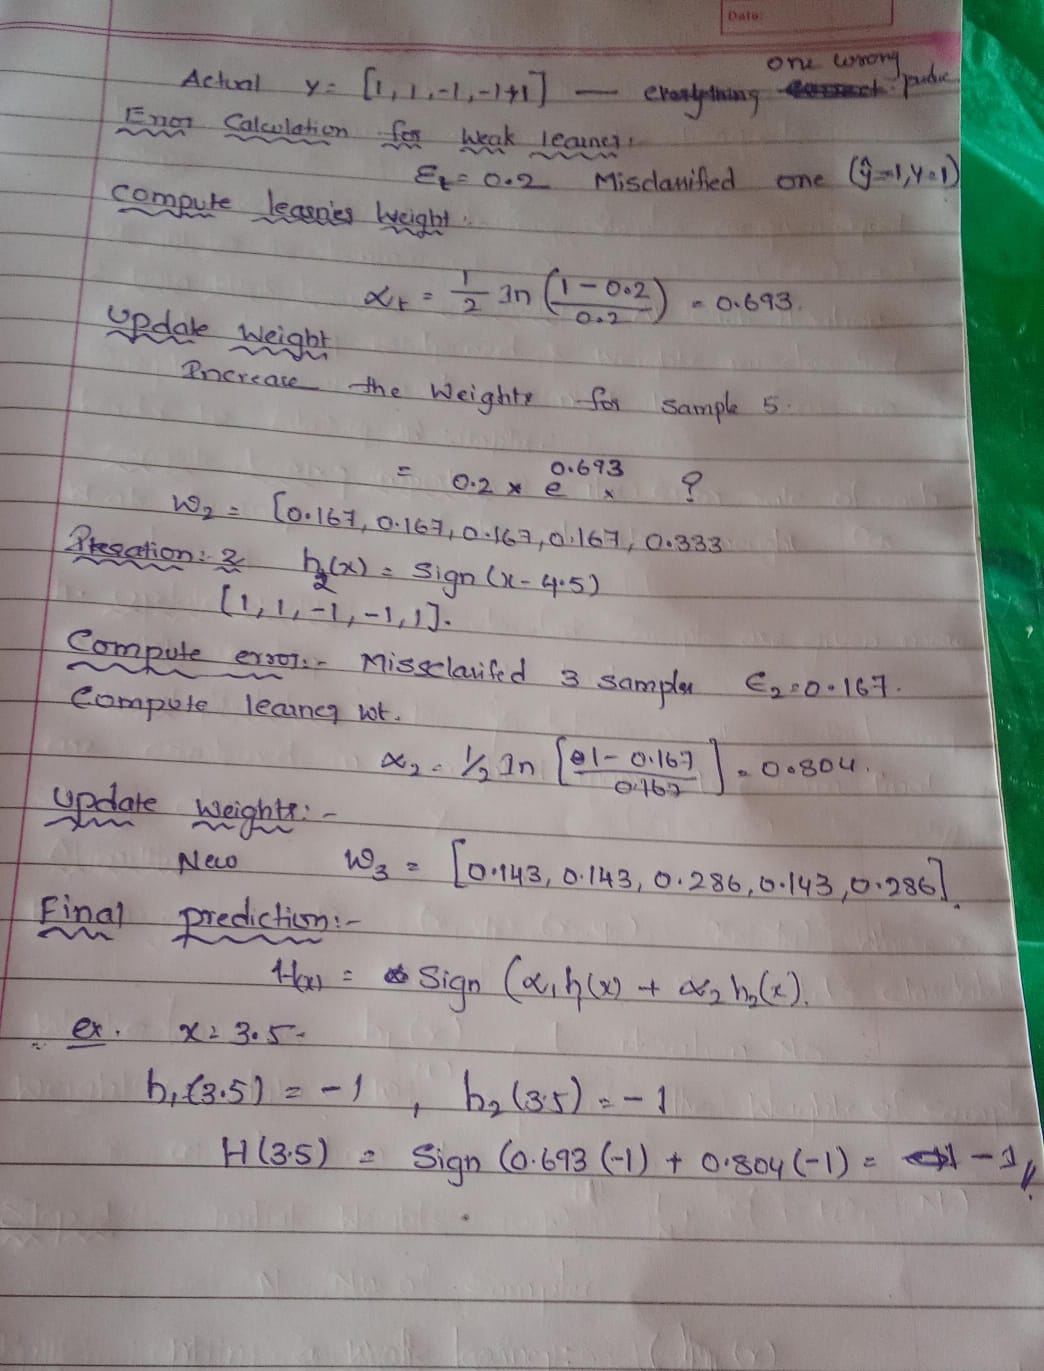 Date:
one wrong
Actual y = [1, 1, -1, -1, +1] — everything predic
Error Calculation for Weak learner:
Ɛt = 0.2 Misclassified one (ŷ=-1, y=1)
Compute learner's weight:
αt = 1/2 ln ((1 - 0.2)/0.2) = 0.693.
Update Weight
Increase the Weights for sample 5.
= 0.2 × e^0.693 × ?
W2 = [0.167, 0.167, 0.167, 0.167, 0.333
Iteration: 2 h2(x) = Sign (x - 4.5)
[1, 1, -1, -1, 1].
Compute error:- Missclarifed 3 samples Ɛ2 = 0.167.
Compute learner wt.
α2 = 1/2 ln [(1 - 0.167)/0.167] = 0.804.
Update Weights:-
New W3 = [0.143, 0.143, 0.286, 0.143, 0.286].
Final prediction:-
H(x) = Sign (α1 h(x) + α2 h2(x).
ex. x = 3.5.
h1(3.5) = -1 , h2(3.5) = -1
H(3.5) = Sign (0.693 (-1) + 0.804 (-1) = -1